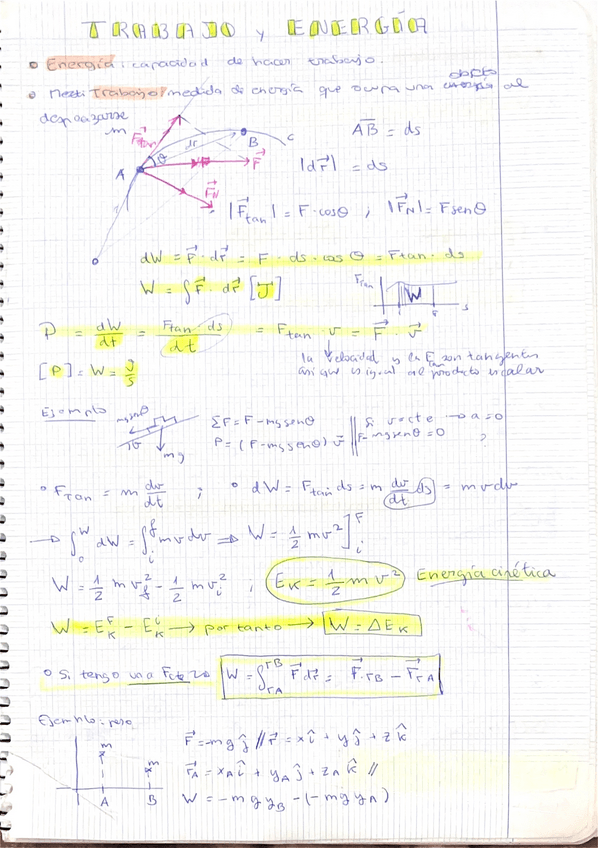 TRABAJO y ENERGÍA
• Energía: capacidad de hacer trabajo.
• Trabajo: medida de energía que ocupa una objeto al
desplazarse
m
F⃗tan
dr
B
C
θ
A
F⃗
F⃗N
AB = ds
|dr⃗| = ds
|F⃗tan| = F·cosθ ; |F⃗N| = F senθ
dW = F⃗·dr⃗ = F·ds·cosθ = Ftan·ds
W = ∫F⃗·dr⃗ [J]
Ftan
W
s
P = dW/dt = Ftan ds/dt = Ftan·v = F⃗·v⃗
[P] = W = J/s
la velocidad y la Ftan son tangentes
así que es igual al producto escalar
Ejemplo
mg senθ
mg
ΣF = F - mg senθ
P = (F - mg senθ) v⃗
Si v = cte → a = 0
F - mg senθ = 0
• Ftan = m dv/dt ; • dW = Ftan ds = m dv/dt ds = m v dv
→ ∫₀ᵂ dW = ∫ᵢᶠ m v dv ⇒ W = 1/2 mv²]ᵢᶠ
W = 1/2 m v²f - 1/2 m v²i , Ek = 1/2 m v² Energía cinética
W = Eᶠk - Eⁱk → por tanto → W = ΔEk
• Si tengo una Fcte W = ∫rA^rB F⃗ dr⃗ = F⃗·rB - F⃗rA
Ejemplo: peso
m
m
A
B
F⃗ = -mg ĵ // r⃗ = x î + y ĵ + z k̂
r⃗A = xA î + yA ĵ + zA k̂ //
W = -mg yB - (-mg yA)